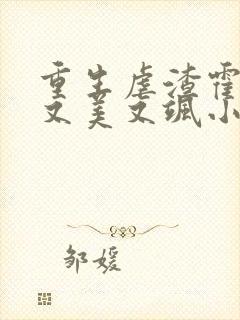 重生虐渣霍
又美又飒小
邹媛